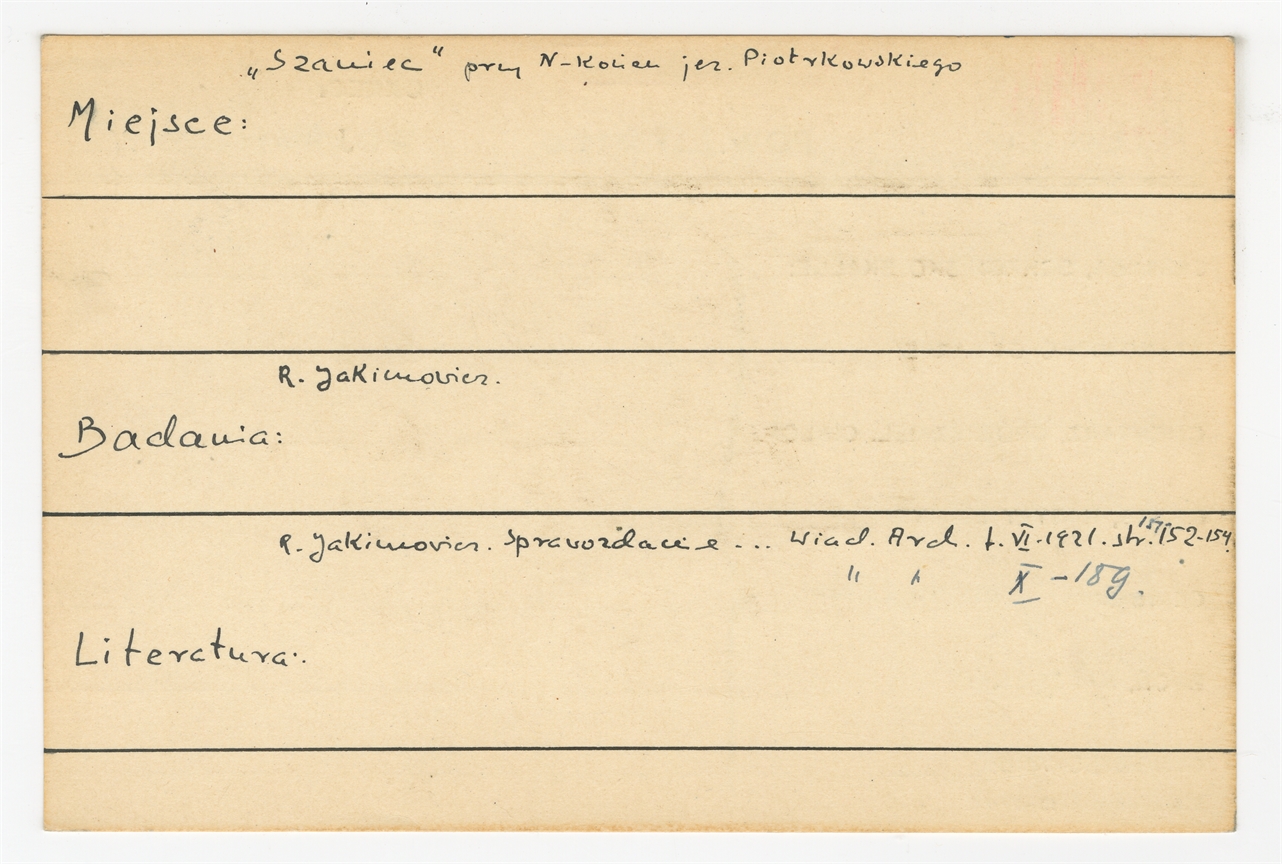 „Szaniec" przy N-Koniec jez. Piotrkowskiego
Miejsce:
R. Jakimowicz.
Badania:
R. Jakimowicz. Sprawozdanie ... Wiad. Arch. t. VI-1921. str. 151, 152-154.
" " X - 189.
Literatura: